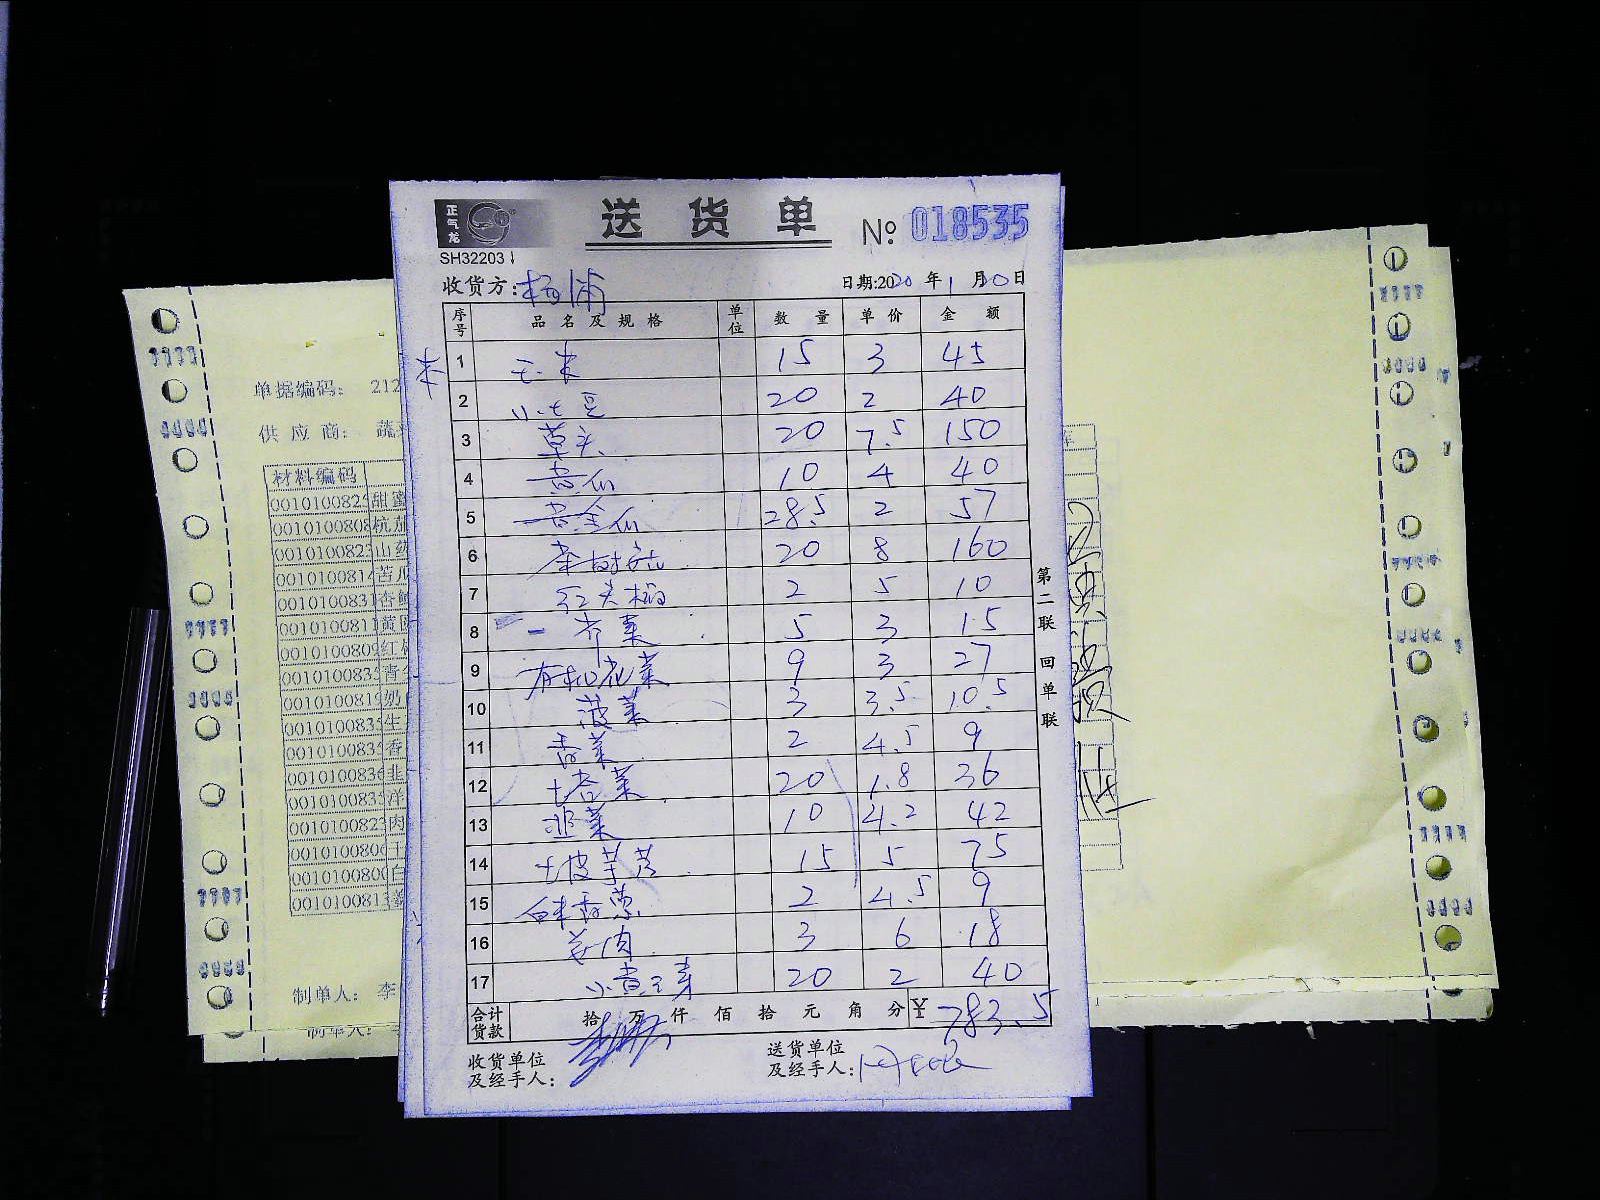 正气龙
送货单
№ 018535
SH32203
收货方: 杨浦
日期:2020年1月10日
序号 品名及规格 单位 数量 单价 金额
1 玉米 15 3 45
2 小土豆 20 2 40
3 草头 20 7.5 150
4 黄瓜 10 4 40
5 黄金瓜 28.5 2 57
6 茶树菇 20 8 160
7 红尖椒 2 5 10
8 芹菜 5 3 15
9 有机花菜 9 3 27
10 菠菜 3 3.5 10.5
11 香菜 2 4.5 9
12 塔菜 20 1.8 36
13 韭菜 10 4.2 42
14 芋艿 15 5 75
15 香葱 2 4.5 9
16 姜肉 3 6 18
17 小黄豆芽 20 2 40
合计货款 拾 万 仟 佰 拾 元 角 分 ¥ 783.5
收货单位及经手人:
送货单位及经手人:
第二联 回单联
单据编码: 212
供应商: 蔬
材料编码
001010082 甜蜜
001010080 杭茄
001010082 山药
001010081 苦瓜
001010083 杏鲍
001010081 黄
001010080 红
001010083 青
001010081 奶
001010083 生
001010083 香
001010083 韭
001010083 洋
001010082 肉
001010080 干
001010080 白
001010081
制单人: 李
制单人: